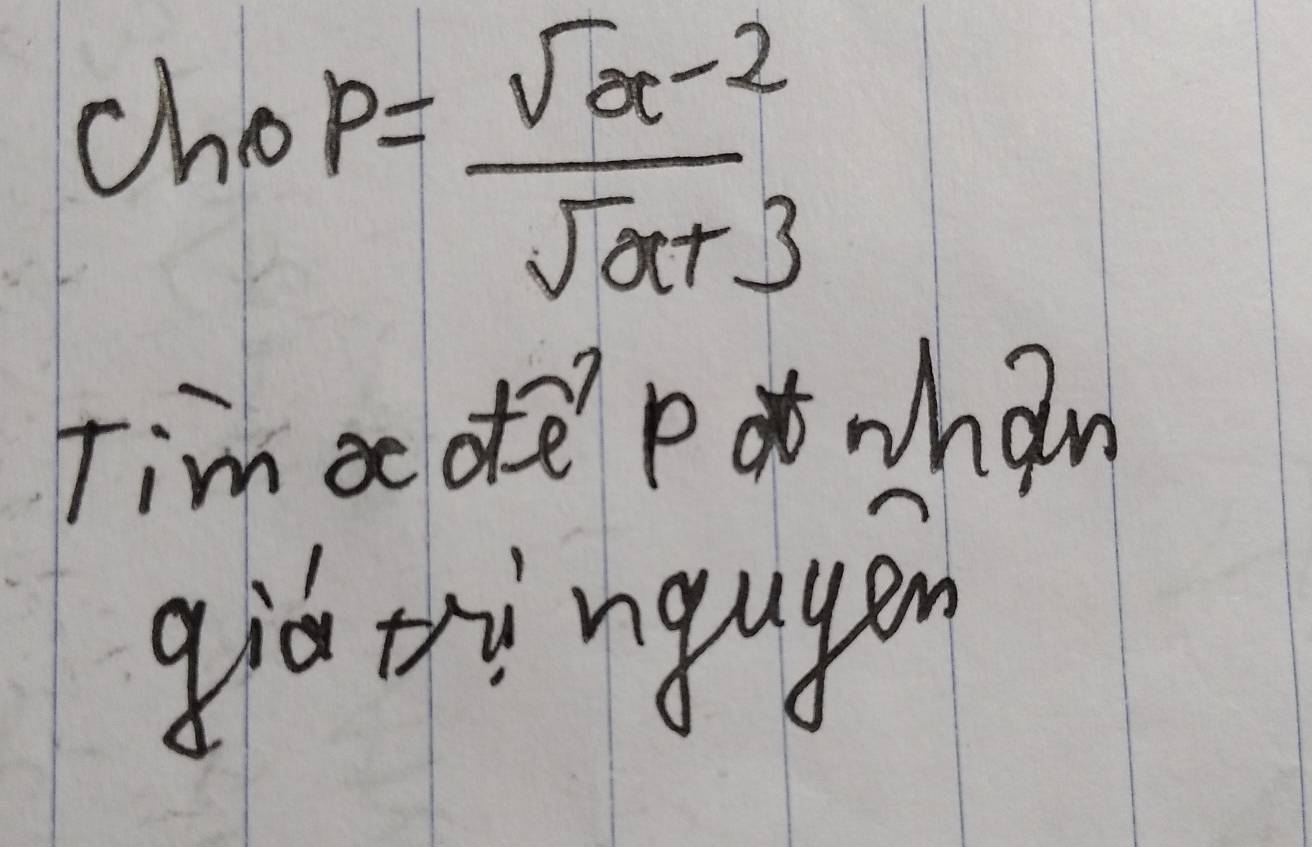 Cho P = \frac{\sqrt{x}-2}{\sqrt{x}+3}
Tìm x để P nhận
giá trị nguyên